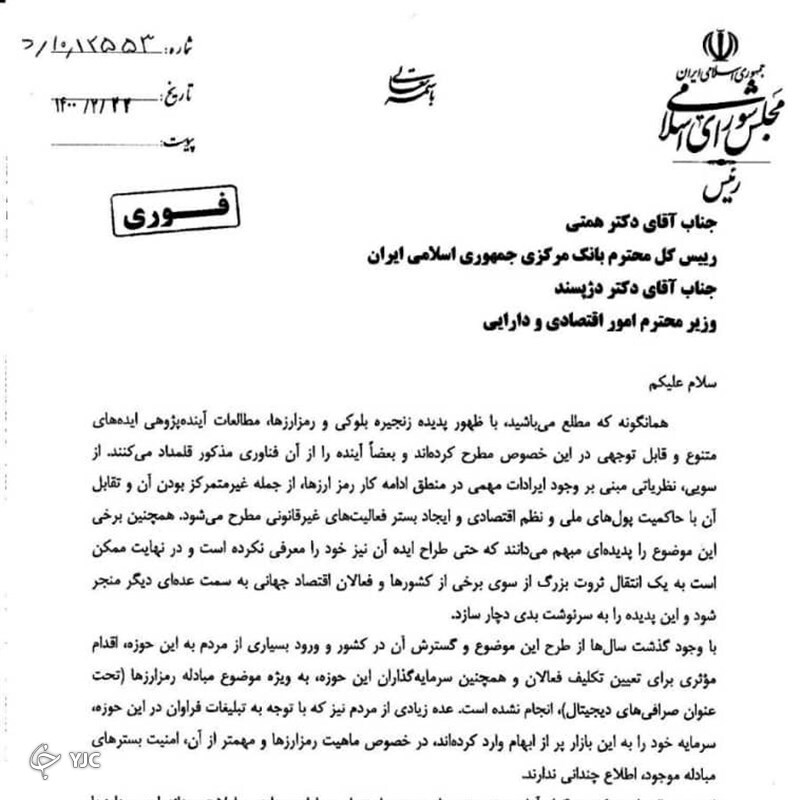 جمهوری اسلامی ایران
مجلس شورای اسلامی
رئیس
باسمه تعالی
شماره: ۱۰,۱۲۵۵۳/د
تاریخ: ۱۴۰۰/۲/۲۲
پیوست:
فــوری
جناب آقای دکتر همتی
رییس کل محترم بانک مرکزی جمهوری اسلامی ایران
جناب آقای دکتر دژپسند
وزیر محترم امور اقتصادی و دارایی
سلام علیکم
همانگونه که مطلع می‌باشید، با ظهور پدیده زنجیره بلوکی و رمزارزها، مطالعات آینده‌پژوهی ایده‌های
متنوع و قابل توجهی در این خصوص مطرح کرده‌اند و بعضاً آینده را از آن فناوری مذکور قلمداد می‌کنند. از
سویی، نظریاتی مبنی بر وجود ایرادات مهمی در منطق ادامه کار رمز ارزها، از جمله غیرمتمرکز بودن آن و تقابل
آن با حاکمیت پول‌های ملی و نظم اقتصادی و ایجاد بستر فعالیت‌های غیرقانونی مطرح می‌شود. همچنین برخی
این موضوع را پدیده‌ای مبهم می‌دانند که حتی طراح ایده آن نیز خود را معرفی نکرده است و در نهایت ممکن
است به یک انتقال ثروت بزرگ از سوی برخی از کشورها و فعالان اقتصاد جهانی به سمت عده‌ای دیگر منجر
شود و این پدیده را به سرنوشت بدی دچار سازد.
با وجود گذشت سال‌ها از طرح این موضوع و گسترش آن در کشور و ورود بسیاری از مردم به این حوزه، اقدام
مؤثری برای تعیین تکلیف فعالان و همچنین سرمایه‌گذاران این حوزه، به ویژه موضوع مبادله رمزارزها (تحت
عنوان صرافی‌های دیجیتال)، انجام نشده است. عده زیادی از مردم نیز که با توجه به تبلیغات فراوان در این حوزه،
سرمایه خود را به این بازار پر از ابهام وارد کرده‌اند، در خصوص ماهیت رمزارزها و مهمتر از آن، امنیت بسترهای
مبادله موجود، اطلاع چندانی ندارند.
YJC